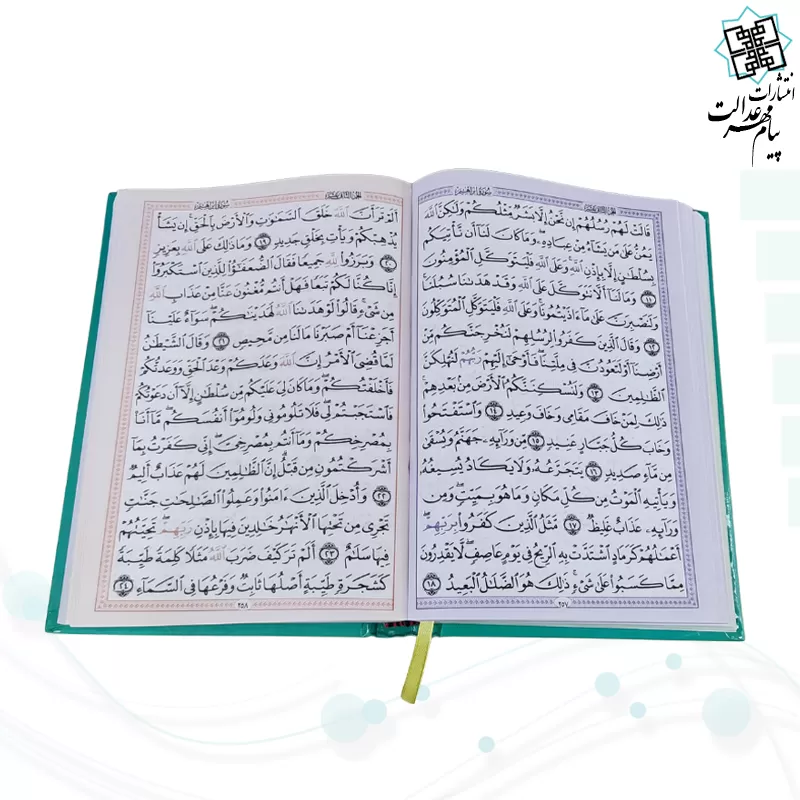 انتشارات
پیام مهر عدالت
سورة ابراهیم
قَالَتْ لَهُمْ رُسُلُهُمْ إِن نَّحْنُ إِلَّا بَشَرٌ مِّثْلُكُمْ وَلَٰكِنَّ اللَّهَ
يَمُنُّ عَلَىٰ مَن يَشَآءُ مِنْ عِبَادِهِۦ وَمَا كَانَ لَنَآ أَن نَّأْتِيَكُم
بِسُلْطَٰنٍ إِلَّا بِإِذْنِ اللَّهِ وَعَلَى اللَّهِ فَلْيَتَوَكَّلِ الْمُؤْمِنُونَ
﴿١١﴾ وَمَا لَنَآ أَلَّا نَتَوَكَّلَ عَلَى اللَّهِ وَقَدْ هَدَىٰنَا سُبُلَنَا
وَلَنَصْبِرَنَّ عَلَىٰ مَآ ءَاذَيْتُمُونَا وَعَلَى اللَّهِ فَلْيَتَوَكَّلِ الْمُتَوَكِّلُونَ
﴿١٢﴾ وَقَالَ الَّذِينَ كَفَرُوا لِرُسُلِهِمْ لَنُخْرِجَنَّكُم مِّنْ
أَرْضِنَآ أَوْ لَتَعُودُنَّ فِي مِلَّتِنَا فَأَوْحَىٰٓ إِلَيْهِمْ رَبُّهُمْ لَنُهْلِكَنَّ
الظَّٰلِمِينَ ﴿١٣﴾ وَلَنُسْكِنَنَّكُمُ الْأَرْضَ مِن بَعْدِهِمْ
ذَٰلِكَ لِمَنْ خَافَ مَقَامِي وَخَافَ وَعِيدِ ﴿١٤﴾ وَاسْتَفْتَحُوا
وَخَابَ كُلُّ جَبَّارٍ عَنِيدٍ ﴿١٥﴾ مِّن وَرَآئِهِۦ جَهَنَّمُ وَيُسْقَىٰ
مِن مَّآءٍ صَدِيدٍ ﴿١٦﴾ يَتَجَرَّعُهُۥ وَلَا يَكَادُ يُسِيغُهُۥ
وَيَأْتِيهِ الْمَوْتُ مِن كُلِّ مَكَانٍ وَمَا هُوَ بِمَيِّتٍ وَمِن
وَرَآئِهِۦ عَذَابٌ غَلِيظٌ ﴿١٧﴾ مَّثَلُ الَّذِينَ كَفَرُوا بِرَبِّهِمْ
أَعْمَٰلُهُمْ كَرَمَادٍ اشْتَدَّتْ بِهِ الرِّيحُ فِي يَوْمٍ عَاصِفٍ لَّا يَقْدِرُونَ
مِمَّا كَسَبُوا عَلَىٰ شَيْءٍ ذَٰلِكَ هُوَ الضَّلَٰلُ الْبَعِيدُ ﴿١٨﴾
٢٥٧
سورة ابراهیم
أَلَمْ تَرَ أَنَّ اللَّهَ خَلَقَ السَّمَٰوَٰتِ وَالْأَرْضَ بِالْحَقِّ إِن يَشَأْ
يُذْهِبْكُمْ وَيَأْتِ بِخَلْقٍ جَدِيدٍ ﴿١٩﴾ وَمَا ذَٰلِكَ عَلَى اللَّهِ بِعَزِيزٍ
﴿٢٠﴾ وَبَرَزُوا لِلَّهِ جَمِيعًا فَقَالَ الضُّعَفَٰٓؤُا لِلَّذِينَ اسْتَكْبَرُوٓا
إِنَّا كُنَّا لَكُمْ تَبَعًا فَهَلْ أَنتُم مُّغْنُونَ عَنَّا مِنْ عَذَابِ اللَّهِ
مِن شَيْءٍ قَالُوا لَوْ هَدَىٰنَا اللَّهُ لَهَدَيْنَٰكُمْ سَوَآءٌ عَلَيْنَآ
أَجَزِعْنَآ أَمْ صَبَرْنَا مَا لَنَا مِن مَّحِيصٍ ﴿٢١﴾ وَقَالَ الشَّيْطَٰنُ
لَمَّا قُضِيَ الْأَمْرُ إِنَّ اللَّهَ وَعَدَكُمْ وَعْدَ الْحَقِّ وَوَعَدتُّكُمْ
فَأَخْلَفْتُكُمْ وَمَا كَانَ لِيَ عَلَيْكُم مِّن سُلْطَٰنٍ إِلَّآ أَن دَعَوْتُكُمْ
فَاسْتَجَبْتُمْ لِي فَلَا تَلُومُونِي وَلُومُوٓا أَنفُسَكُم مَّآ أَنَا
بِمُصْرِخِكُمْ وَمَآ أَنتُم بِمُصْرِخِيَّ إِنِّي كَفَرْتُ بِمَآ
أَشْرَكْتُمُونِ مِن قَبْلُ إِنَّ الظَّٰلِمِينَ لَهُمْ عَذَابٌ أَلِيمٌ
﴿٢٢﴾ وَأُدْخِلَ الَّذِينَ ءَامَنُوا وَعَمِلُوا الصَّٰلِحَٰتِ جَنَّٰتٍ
تَجْرِي مِن تَحْتِهَا الْأَنْهَٰرُ خَٰلِدِينَ فِيهَا بِإِذْنِ رَبِّهِمْ تَحِيَّتُهُمْ
فِيهَا سَلَٰمٌ ﴿٢٣﴾ أَلَمْ تَرَ كَيْفَ ضَرَبَ اللَّهُ مَثَلًا كَلِمَةً طَيِّبَةً
كَشَجَرَةٍ طَيِّبَةٍ أَصْلُهَا ثَابِتٌ وَفَرْعُهَا فِي السَّمَآءِ ﴿٢٤﴾
٢٥٨